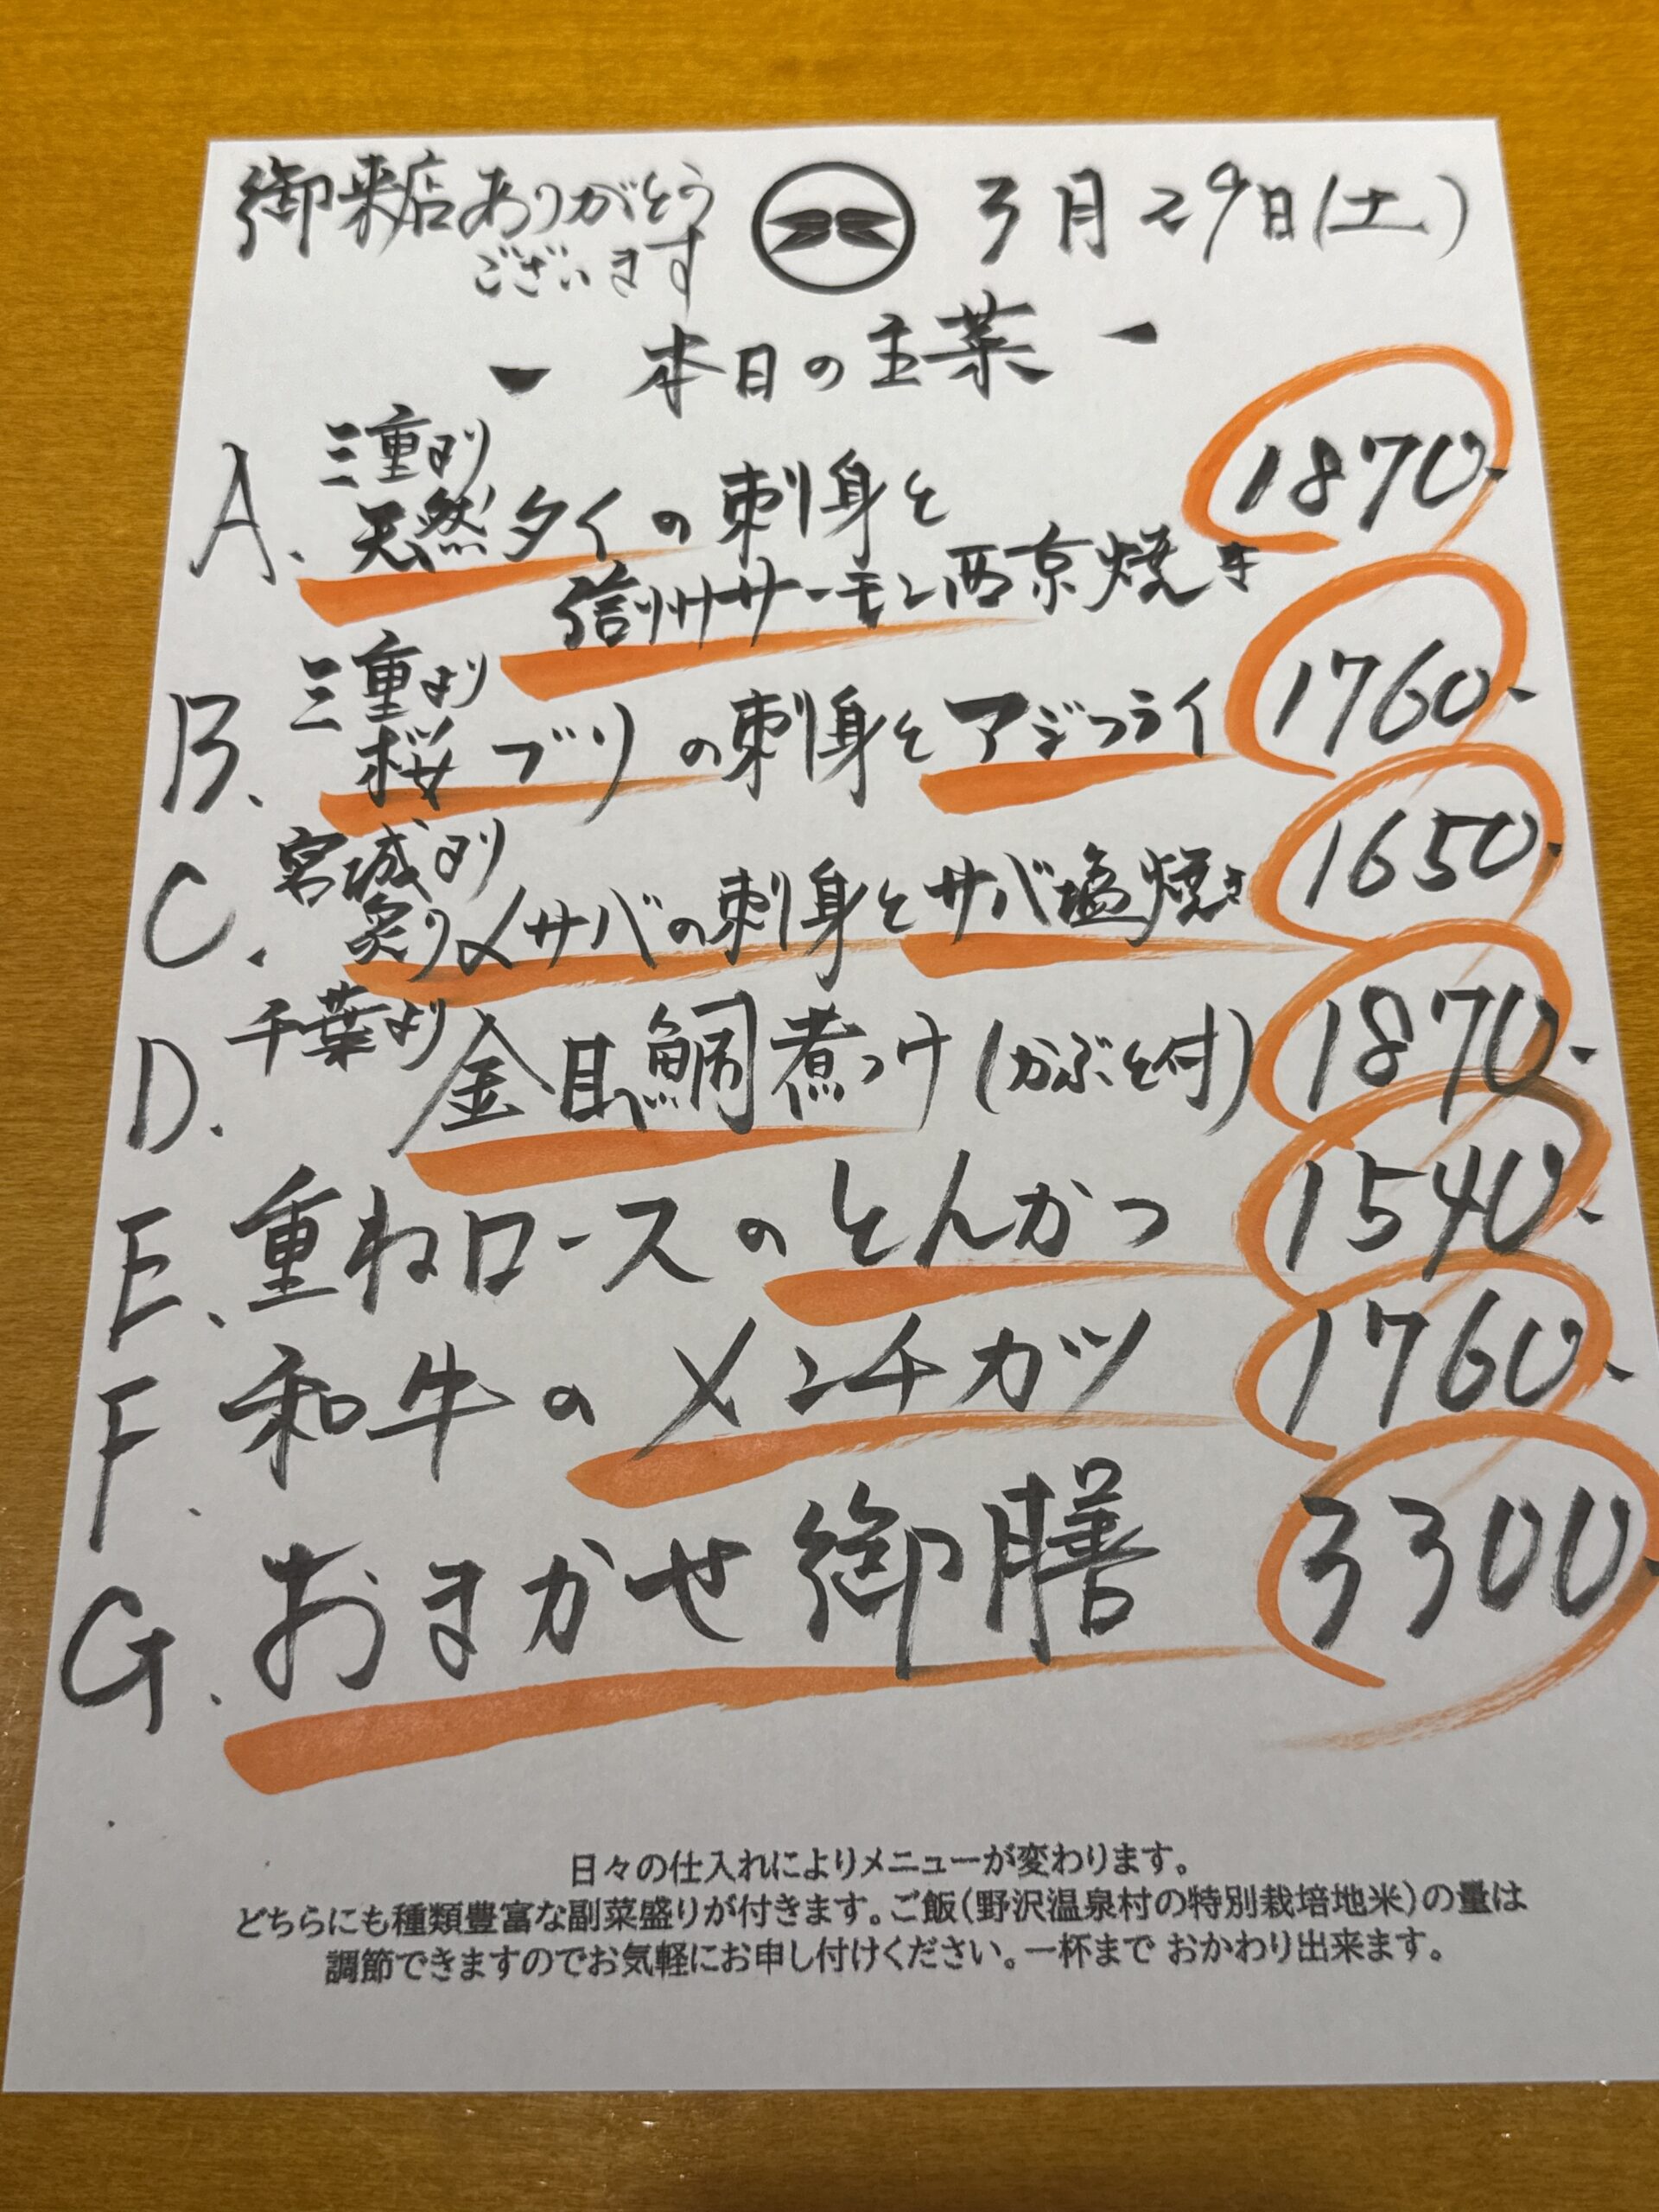 御来店ありがとう
ございます
3月29日(土)
- 本日の主菜 -
A. 三重より
天然タイの刺身と
信州サーモン西京焼き
1870-
B. 三重より
桜ブリの刺身とアジフライ 1760-
C. 宮城より
炙り〆サバの刺身とサバ塩焼き 1650-
D. 千葉より
金目鯛煮つけ(かぶと付) 1870-
E. 重ねロースのとんかつ 1540-
F. 和牛のメンチカツ 1760-
G. おまかせ御膳 3300-
日々の仕入れによりメニューが変わります。
どちらにも種類豊富な副菜盛りが付きます。ご飯(野沢温泉村の特別栽培地米)の量は
調節できますのでお気軽にお申し付けください。一杯まで おかわり出来ます。